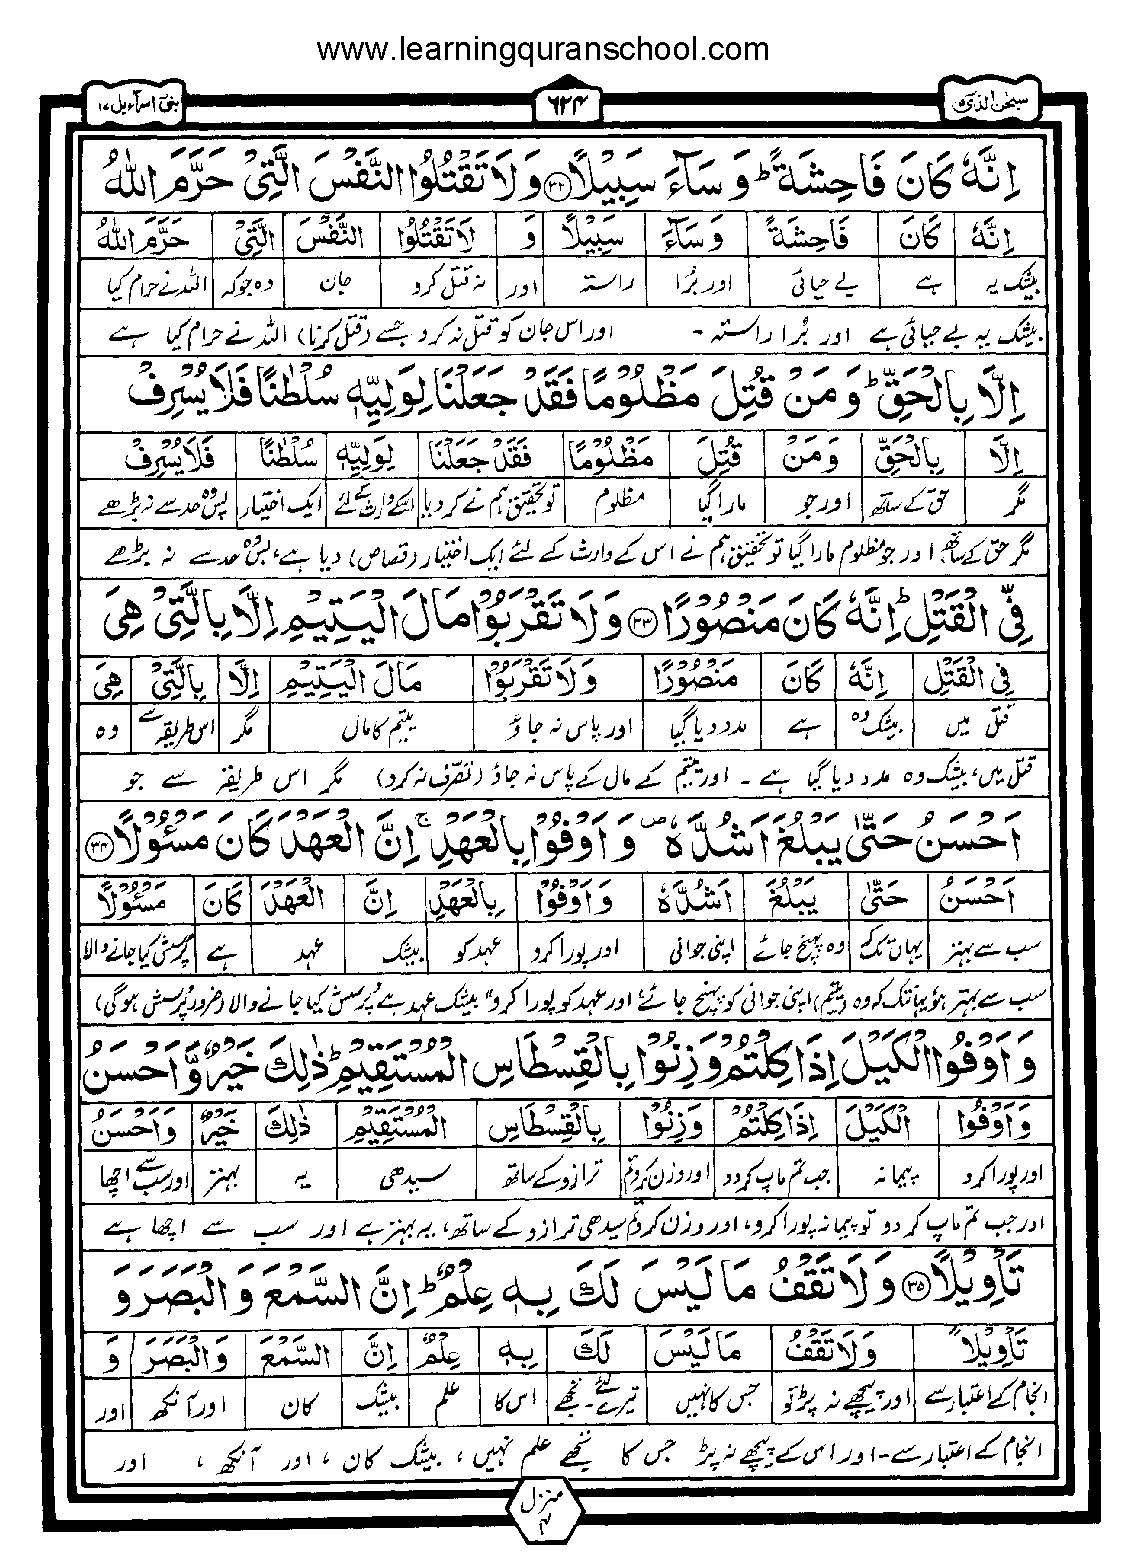 www.learningquranschool.com
سبحن الذی ۱۵
۶۲۴
بنی اسرآءیل ۱۷
اِنَّهٗ كَانَ فَاحِشَةً ؕ وَ سَآءَ سَبِیْلًا ۳۲ وَ لَا تَقْتُلُوا النَّفْسَ الَّتِیْ حَرَّمَ اللّٰهُ
اِنَّهٗ كَانَ فَاحِشَةً وَ سَآءَ سَبِیْلًا وَ لَا تَقْتُلُوا النَّفْسَ الَّتِیْ حَرَّمَ اللّٰهُ
بیشک یہ ہے بے حیائی اور بُرا راستہ اور نہ قتل کرو جان وہ جو کہ اللہ نے حرام کیا
بیشک یہ بے حیائی ہے اور بُرا راستہ - اور اس جان کو قتل نہ کرو جسے (قتل کرنا) اللہ نے حرام کیا ہے
اِلَّا بِالْحَقِّ ؕ وَ مَنْ قُتِلَ مَظْلُوْمًا فَقَدْ جَعَلْنَا لِوَلِیِّهٖ سُلْطٰنًا فَلَا یُسْرِفْ
اِلَّا بِالْحَقِّ وَ مَنْ قُتِلَ مَظْلُوْمًا فَقَدْ جَعَلْنَا لِوَلِیِّهٖ سُلْطٰنًا فَلَا یُسْرِفْ
مگر حق کے ساتھ اور جو مارا گیا مظلوم تو تحقیق ہم نے کر دیا اسکے وارث کے لئے ایک اختیار پس وہ حد سے نہ بڑھے
مگر حق کے ساتھ اور جو مظلوم مارا گیا تو تحقیق ہم نے اس کے وارث کے لئے (ایک اختیار (قصاص) دیا ہے، پس وہ حد سے نہ بڑھے
فِّی الْقَتْلِ ؕ اِنَّهٗ كَانَ مَنْصُوْرًا ۳۳ وَ لَا تَقْرَبُوْا مَالَ الْیَتِیْمِ اِلَّا بِالَّتِیْ هِیَ
فِی الْقَتْلِ اِنَّهٗ كَانَ مَنْصُوْرًا وَ لَا تَقْرَبُوْا مَالَ الْیَتِیْمِ اِلَّا بِالَّتِیْ هِیَ
قتل میں بیشک وہ ہے مدد دیا گیا اور پاس نہ جاؤ یتیم کا مال مگر اس طریقہ سے وہ
قتل میں، بیشک وہ مدد دیا گیا ہے - اور یتیم کے مال کے پاس نہ جاؤ (تصرّف نہ کرو) مگر اس طریقہ سے جو
اَحْسَنُ حَتّٰی یَبْلُغَ اَشُدَّهٗ ۪ وَ اَوْفُوْا بِالْعَهْدِ ۚ اِنَّ الْعَهْدَ كَانَ مَسْـُٔوْلًا ۳۴
اَحْسَنُ حَتّٰی یَبْلُغَ اَشُدَّهٗ وَ اَوْفُوْا بِالْعَهْدِ اِنَّ الْعَهْدَ كَانَ مَسْـُٔوْلًا
سب سے بہتر یہاں تک کہ وہ پہنچ جائے اپنی جوانی اور پورا کرو عہد کو بیشک عہد ہے پُرسش کیا جانے والا
سب سے بہتر ہو یہانتک کہ وہ (یتیم) اپنی جوانی کو پہنچ جائے اور عہد کو پورا کرو بیشک عہد ہے پُرسش کیا جانے والا (ضرور پُرسش ہوگی)
وَ اَوْفُوا الْكَیْلَ اِذَا كِلْتُمْ وَ زِنُوْا بِالْقِسْطَاسِ الْمُسْتَقِیْمِ ؕ ذٰلِكَ خَیْرٌ وَّ اَحْسَنُ
وَ اَوْفُوا الْكَیْلَ اِذَا كِلْتُمْ وَ زِنُوْا بِالْقِسْطَاسِ الْمُسْتَقِیْمِ ذٰلِكَ خَیْرٌ وَ اَحْسَنُ
اور پورا کرو پیمانہ جب تم ماپ کر دو اور وزن کرو تم ترازو کے ساتھ سیدھی یہ بہتر اور سب سے اچھا
اور جب تم ماپ کر دو تو پیمانہ پورا کرو، اور وزن کرو تم سیدھی ترازو کے ساتھ، یہ بہتر ہے اور سب سے اچھا ہے
تَاْوِیْلًا ۳۵ وَ لَا تَقْفُ مَا لَیْسَ لَكَ بِهٖ عِلْمٌ ؕ اِنَّ السَّمْعَ وَ الْبَصَرَ وَ
تَاْوِیْلًا وَ لَا تَقْفُ مَا لَیْسَ لَكَ بِهٖ عِلْمٌ اِنَّ السَّمْعَ وَ الْبَصَرَ وَ
انجام کے اعتبار سے اور پیچھے نہ پڑ تو جس کا نہیں تیرے لئے۔ تجھے اس کا علم بیشک کان اور آنکھ اور
انجام کے اعتبار سے - اور اس کے پیچھے نہ پڑ جس کا تجھے علم نہیں، بیشک کان، اور آنکھ، اور
منزل ۴